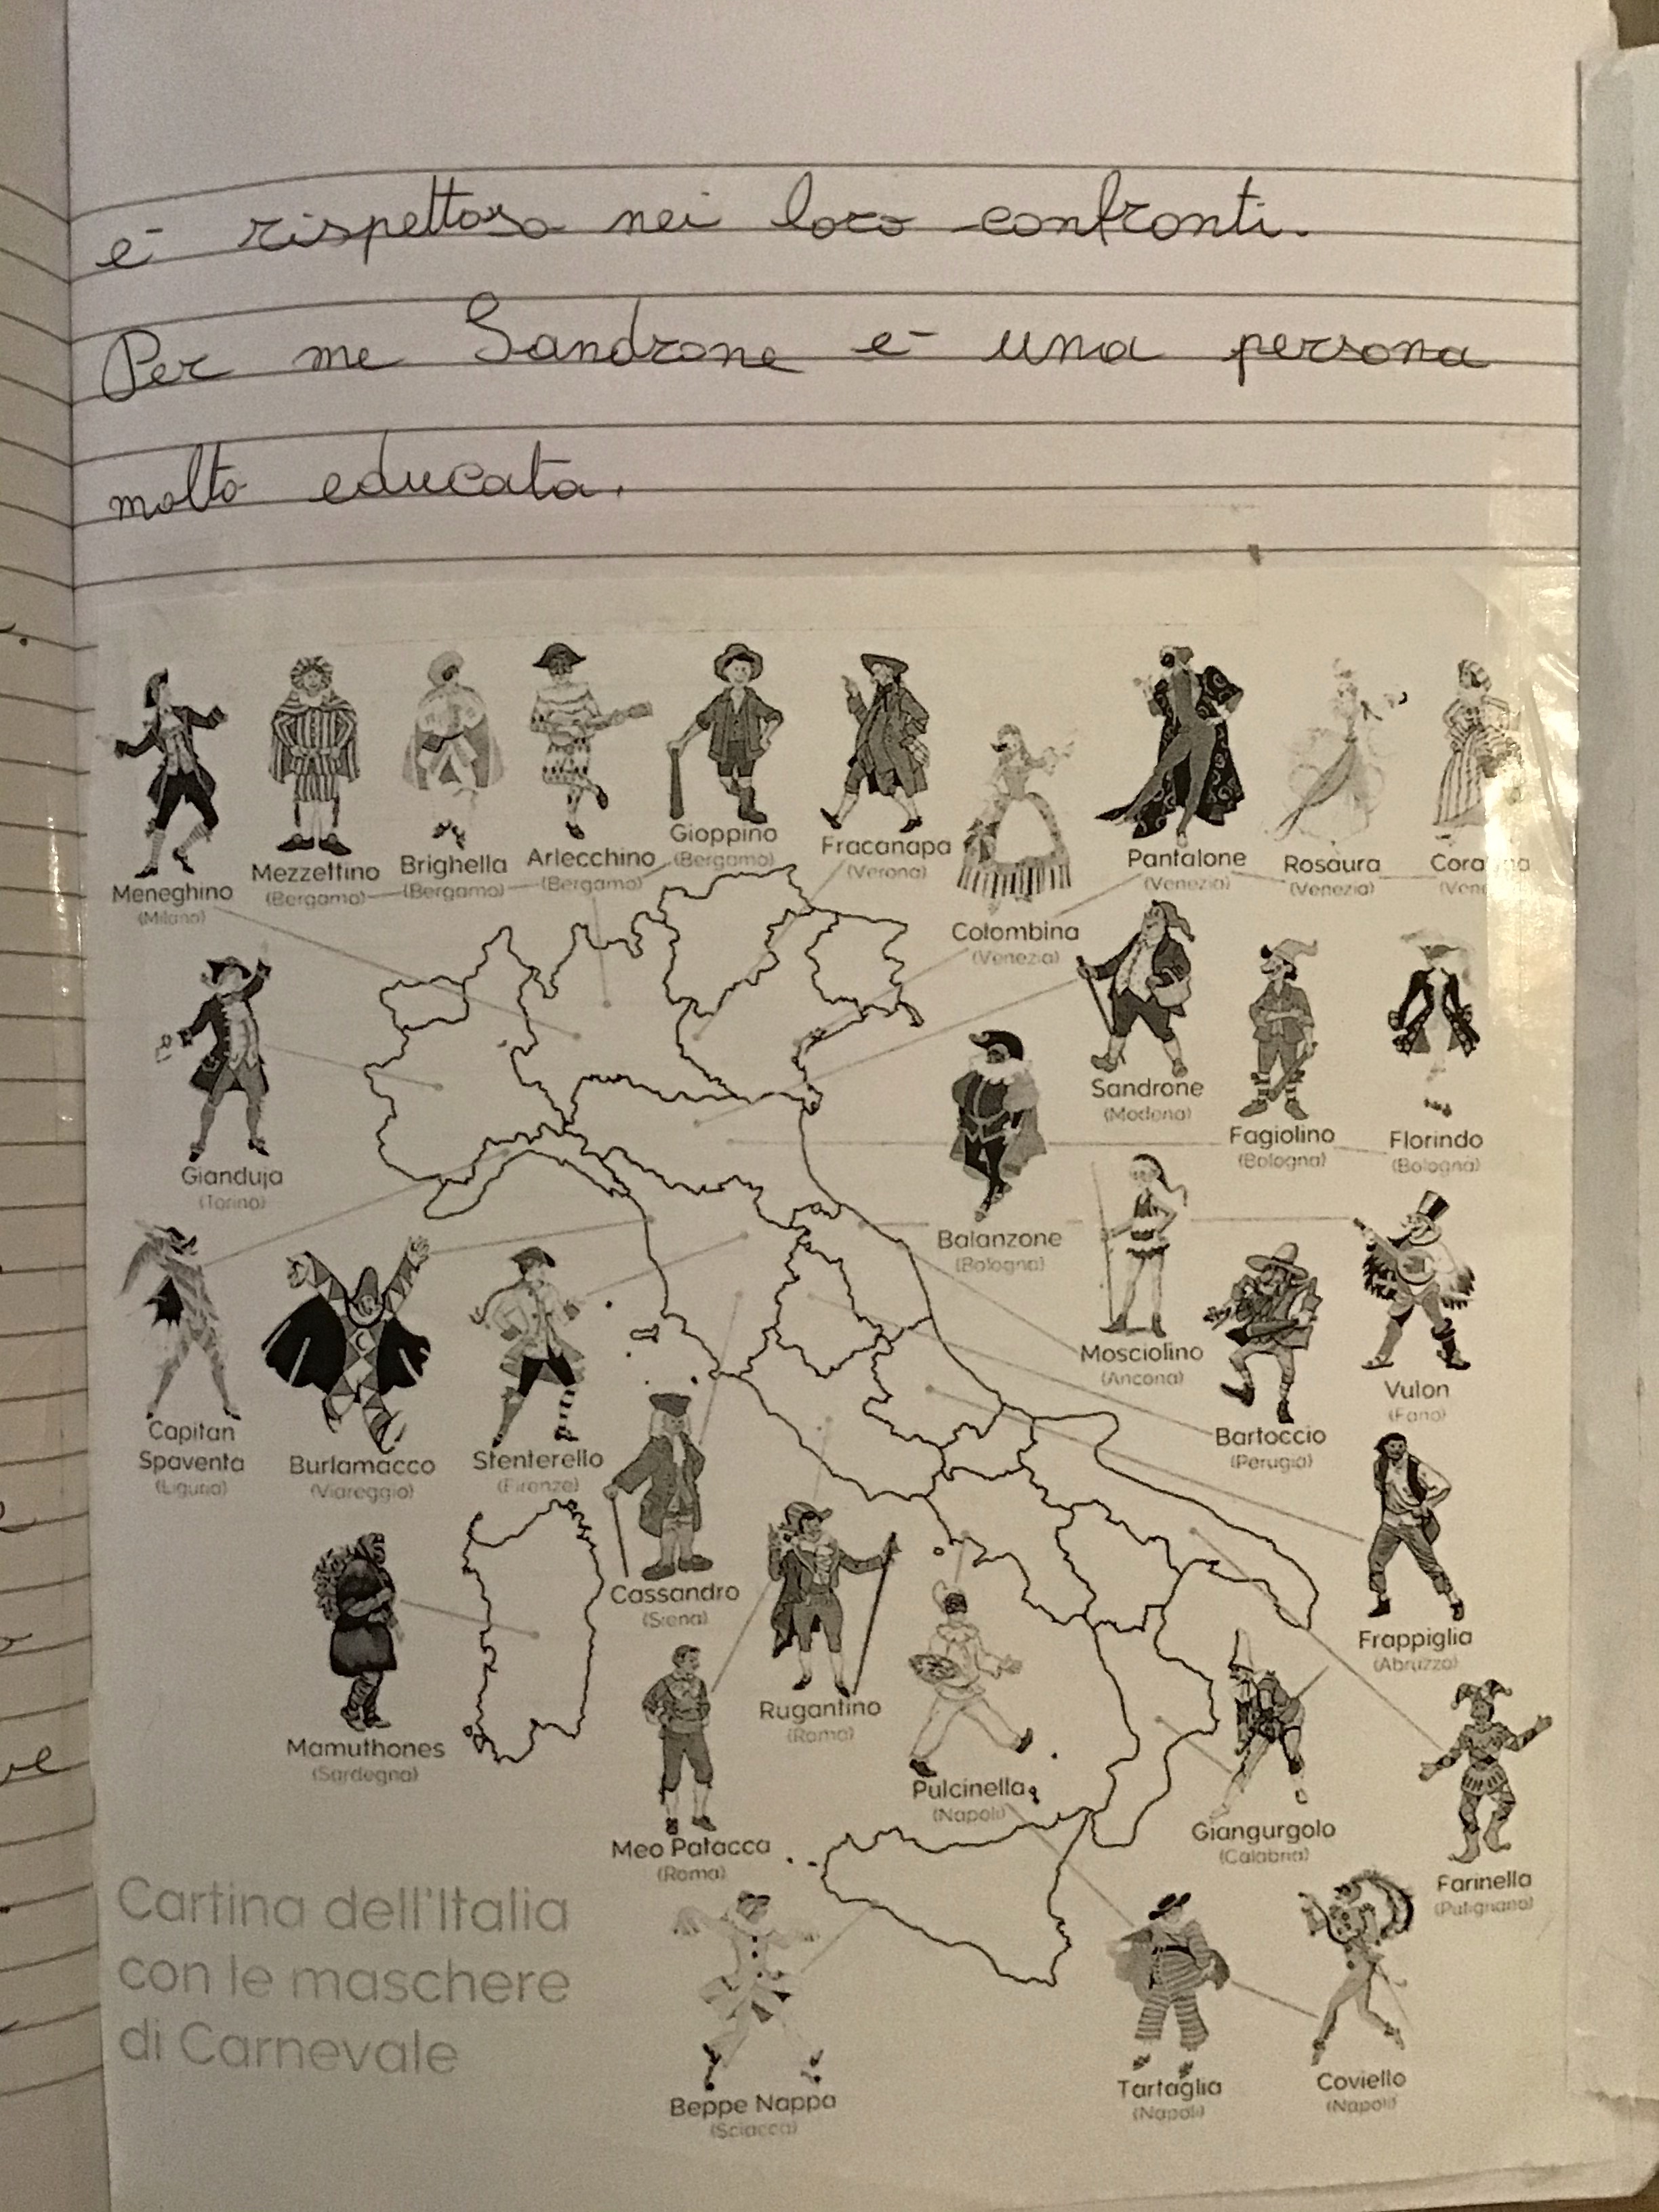 è rispettoso nei loro confronti.
Per me Sandrone è una persona
molto educata.
Meneghino
(Milano)
Mezzettino
(Bergamo)
Brighella
(Bergamo)
Arlecchino
(Bergamo)
Gioppino
(Bergamo)
Fracanapa
(Verona)
Colombina
(Venezia)
Pantalone
(Venezia)
Rosaura
(Venezia)
Gianduja
(Torino)
Sandrone
(Modena)
Fagiolino
(Bologna)
Florindo
(Bologna)
Balanzone
(Bologna)
Capitan
Spaventa
(Liguria)
Burlamacco
(Viareggio)
Stenterello
(Firenze)
Mosciolino
(Ancona)
Bartoccio
(Perugia)
Vulon
(Fano)
Cassandro
(Siena)
Rugantino
(Roma)
Frappiglia
(Abruzzo)
Mamuthones
(Sardegna)
Meo Patacca
(Roma)
Pulcinella
(Napoli)
Giangurgolo
(Calabria)
Farinella
(Putignano)
Cartina dell'Italia
con le maschere
di Carnevale
Beppe Nappa
(Sciacca)
Tartaglia
(Napoli)
Coviello
(Napoli)